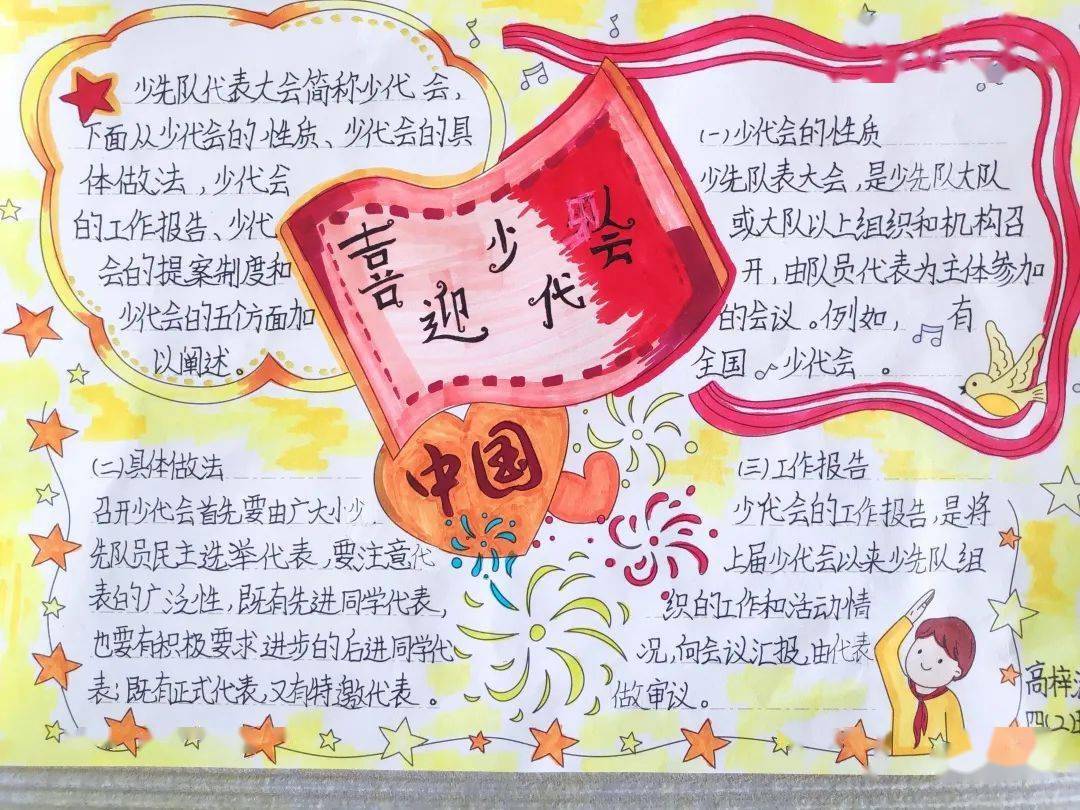 少先队代表大会简称少代会，
下面从少代会的性质、少代会的具
体做法，少代会
的工作报告、少代
会的提案制度和
少代会的五个方面加
以阐述。
喜迎少代会
队
中国
(一)少代会的性质
少先队表大会，是少先队大队
或大队以上组织和机构召
开，由队员代表为主体参加
的会议。例如，有
全国少代会。
(二)具体做法
召开少代会首先要由广大小少
先队员民主选举代表，要注意代
表的广泛性，既有先进同学代表，
也要有积极要求进步的后进同学代
表；既有正式代表，又有特邀代表。
(三)工作报告
少代会的工作报告，是将
上届少代会以来少先队组
织的工作和活动情
况，向会议汇报，由代表
做审议。
高梓
四(2)